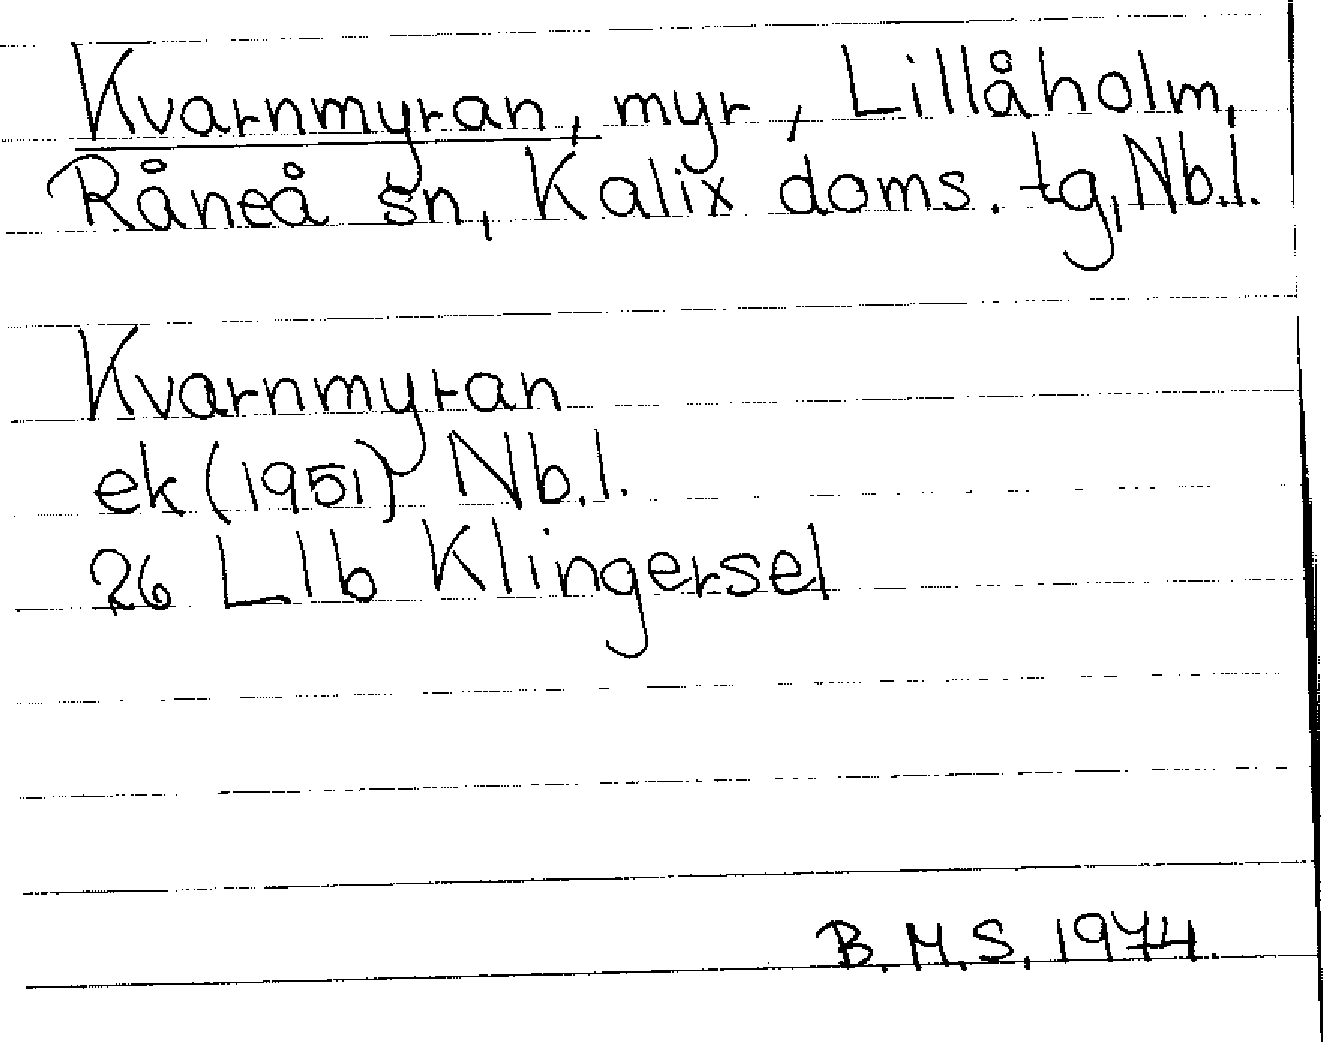 Kvarnmyran, myr, Lillåholm,
Råneå sn, Kalix doms. tg, Nb.l.
Kvarnmyran
ek (1951) Nb.l.
26 L1b Klingersel
B.M.S. 1974.